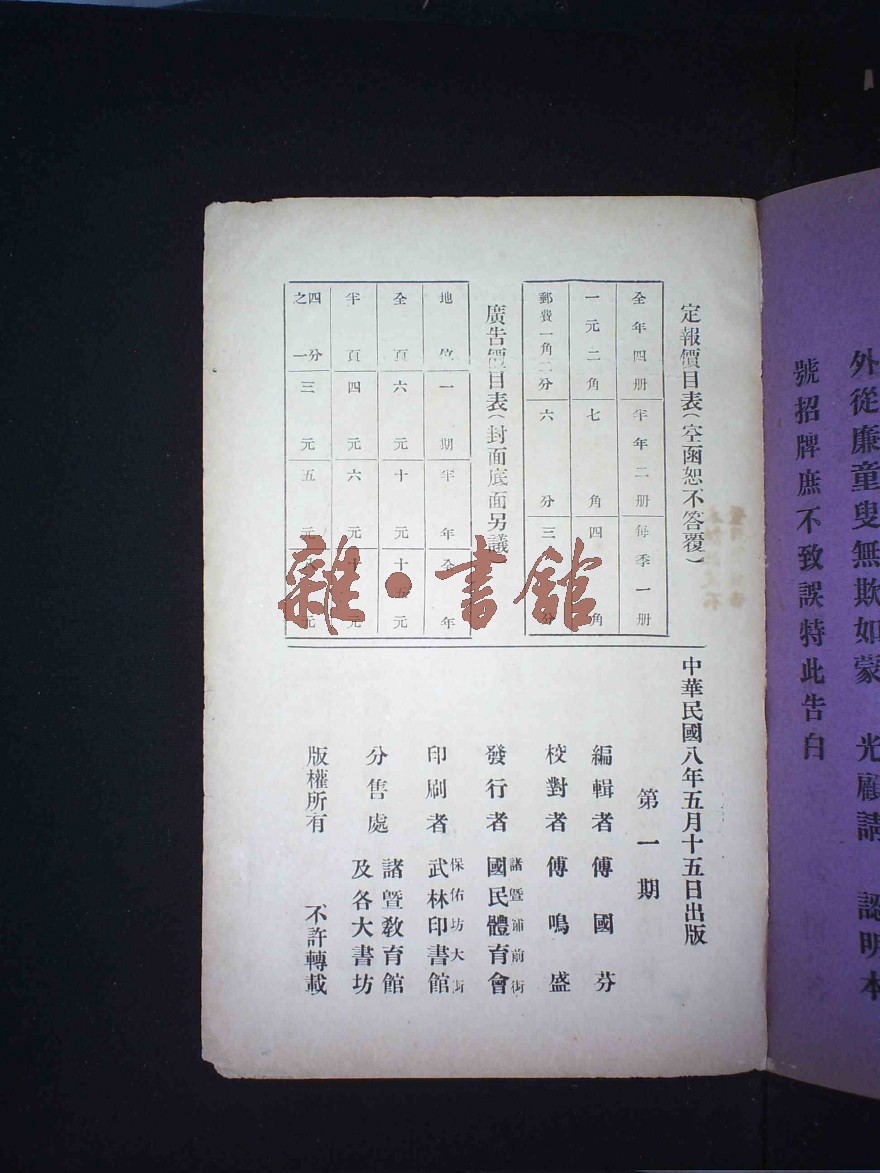 外從廉童叟無欺如蒙 光顧請 認明本
號招牌庶不致誤特此吿白
定報價目表(空函恕不答覆)
全年四册 半年二册 每季一册
一元二角 七角 四角
郵費一角二分 六分 三分
廣吿價目表(封面底面另議)
地位 一期 半年 全年
全頁 六元 十元 十五元
半頁 四元 六元 十元
四分之一 三元 五元 元
雜·書館
中華民國八年五月十五日出版
第一期
編輯者 傅國芬
校對者 傅鳴盛
發行者 諸暨浦前街 國民體育會
印刷者 保佑坊大街 武林印書館
分售處 諸曁敎育館
及各大書坊
版權所有 不許轉載